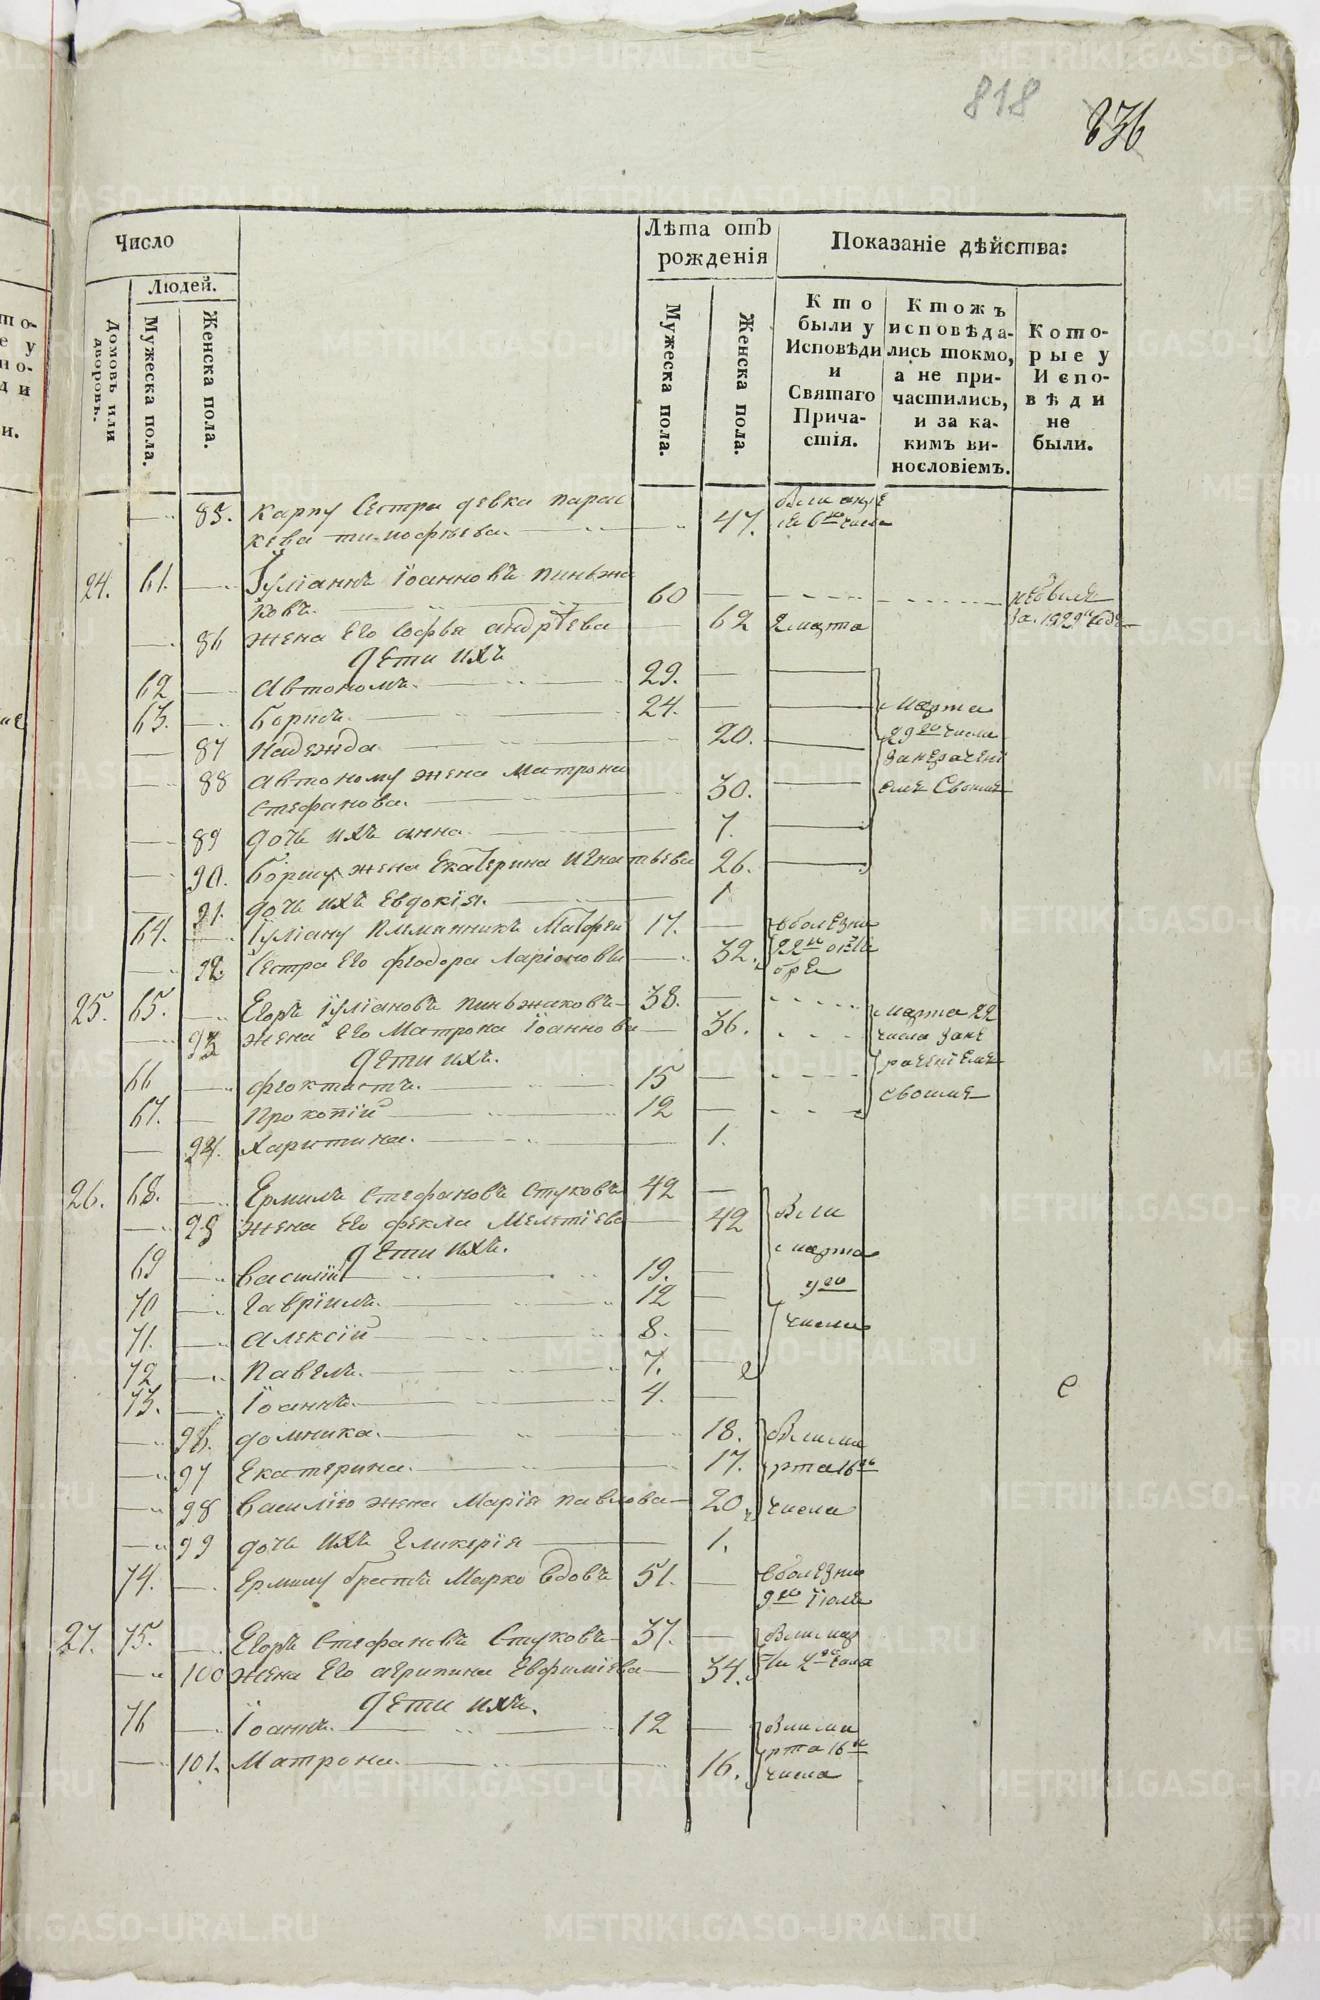 818
836
Число
Людей.
Домовъ или дворовъ.
Мужеска пола.
Женска пола.
Лѣта отъ рожденія
Мужеска пола.
Женска пола.
Показаніе дѣйства:
Кто были у Исповѣди и Святаго Прича-стія.
Ктожъ исповѣда-лись токмо, а не при-частились, и за ка-кимъ ви-нословіемъ.
Кото-рые у Испо-вѣди не были.
85. Карпу Сестра девка параc
кева тимофѣева. 47. 6го числа
24. 61. Іуліаннъ Іоанновъ пиньжа
ковъ. 60
86 жена его Софья андрѣева 62 2 марта
дети ихъ
62 автономъ. 29.
63. борисъ. 24. марта
87 надежда 20. 29го числа
88 автоному жена матрона
стефанова. 30.
89 дочь ихъ анна 7.
90. борису жена екатерина игнатьева 26.
91. дочь ихъ евдокія. 1
64. Іуліану племянникъ Матфей 17. вболезни
92. Сестра его феодора ларіонова 32. 22го октя
бре
25. 65. Егоръ іуліановъ пиньжаковъ 38. марта 22
93 жена его Матрона іоаннова 36. числа
дети ихъ.
66 феоктистъ. 15
67. Прокопій 12
94. Харитина. 1.
26. 68. Ермилъ стефановъ стуковъ 42
95 жена его фекла мелетіева 42 были
дети ихъ. марта
69 Василій 19. 9го
70 гавріилъ 12 числа
71. алексій 8.
72 павелъ. 7.
73. Іоаннъ. 4.
96. домника. 18. были ма
97 екатерина. 17. рта 16го
98 василію жена Марія павлова 20. числа
99 дочь ихъ гликерія 1.
74. ермилу братъ Марко вдовъ 51. вболезни
9го іюля
27. 75. Егоръ Стефановъ Стуковъ 37. были мар
100 жена его агрипина евфиміева 34.
дети ихъ.
76 Іоаннъ. 12 были ма
101. Матрона. 16. рта 16го
числа
METRIKI.GASO-URAL.RU